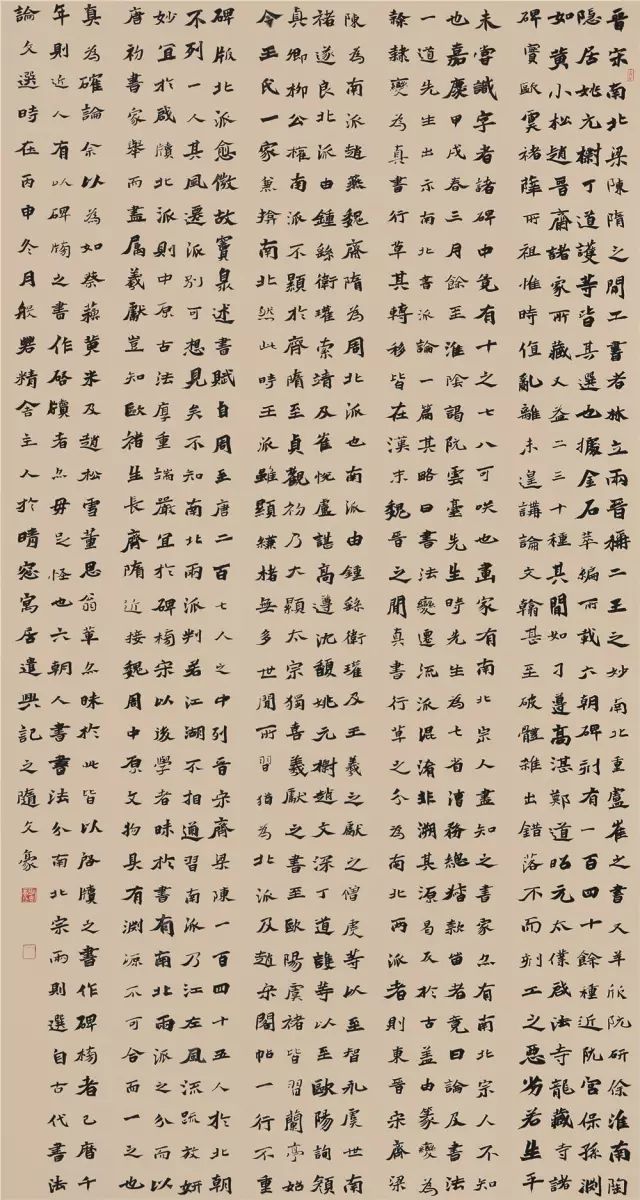 晉宋南北梁陳隋之間工書者林立兩晉稱二王之妙南北重盧崔之書又羊欣阮研徐淮南陶
隱居姚元樹丁道護等皆其選也據金石萃編所載六朝碑刻有一百四十餘種近阮宮保孫淵
如黃小松趙晉齋諸家所藏又益二三十種其間如刁遵高湛鄭道昭元太僕啟法寺龍藏寺諸
碑實歐虞褚薛所祖惟時值亂離未遑講論文翰甚至破體雜出錯落不而刻工之惡劣若生平
未嘗識字者諸碑中竟有十之七八可咲也畫家有南北宗人盡知之書家亦有南北宗人不知
也嘉慶甲戌春三月餘至淮陰謁阮雲臺先生時先生為七省漕務總督款留者竟日論及書法
一道先生出示南北書派論一篇其略曰書法變遷流派混淆非溯其源曷反於古蓋由篆變為
隸隸變為真書行草其轉移皆在漢末魏晉之間真書行草之分為南北兩派者則東晉宋齊梁
陳為南派趙燕魏齊隋為周北派也南派由鍾繇衛瓘及王羲之獻之僧虔等以至智永虞世南
褚遂良北派由鍾繇衛瓘索靖及崔悅盧諶高遵沈馥姚元樹趙文深丁道護等以至歐陽詢
真卿柳公權南派不顯於齊隋至貞觀初乃大顯太宗獨喜羲獻之書至歐陽虞褚皆習蘭亭始
令王氏一家兼掩南北然此時王派雖顯縑楮無多世間所習猶為北派及趙宋閣帖一行不重
碑版北派愈微故竇臮述書賦自周至唐二百七人之中列晉宋齊梁陳一百四十五人於北朝
不列一人其風遷派別可想見矣不知南北兩派判若江湖不相通習南派乃江左風流疏放妍
妙宜於啟牘北派則中原古法厚重端嚴宜於碑榜宋以後學者昧於書有南北兩派之分而以
唐初書家舉而盡屬羲獻豈知歐褚生長齊隋近接魏周中原文物具有淵源不可合而一之也
真為確論余以為如蔡蘇黃米及趙松雪董思翁輩亦昧於此皆以啟牘之書作碑榜者已曆千
年則近人有以碑榜之書作啟牘者亦毋足怪也六朝人書書法分南北宗兩則選自古代書法
論文選時在丙申冬月般若精舍主人於晴窗寓居遣興記之隨文豪